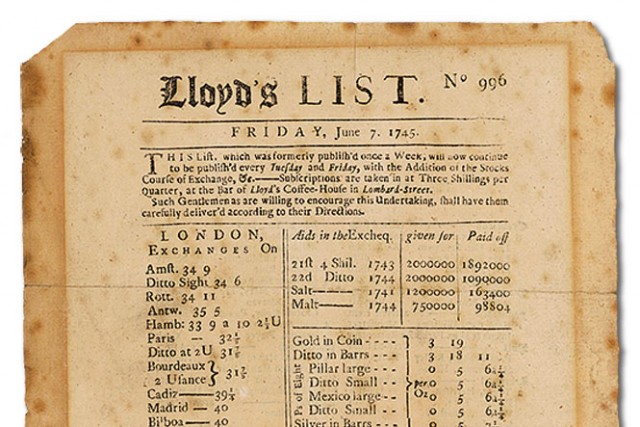 Lloyd's LIST. Nº 996
FRIDAY, June 7. 1745.
THIS List, which was formerly publish'd once a Week, will now continue
to be publish'd every Tuesday and Friday, with the Addition of the Stocks
Course of Exchange, &c.——Subscriptions are taken in at Three Shillings per
Quarter, at the Bar of Lloyd's Coffee-House in Lombard-Street.
Such Gentlemen as are willing to encourage this Undertaking, shall have them
carefully deliver'd according to their Directions.
LONDON,
EXCHANGES On
Amst. 34 9
Ditto Sight 34 6
Rott. 34 11
Antw. 35 5
Hamb: 33 9 a 10 2½U
Paris — 32⅛
Ditto at 2U
Bourdeaux
2 Usance
Cadiz——39⅛
Madrid — 40
Bilboa— 40
Aids in the Excheq. given for Paid off
21st 4 Shil. 1743 2000000 1892000
22d Ditto 1744 2000000 1090000
Salt—— 1741 1200000 163400
Malt—— 1744 750000 98804
Gold in Coin - - - - 3 19
Ditto in Barrs - - - 3 18 11
Ps of Eight
Pillar large - - - - 0 5
Ditto Small - - 0 5
per Oz
Mexico large - - 0 5
Ditto Small - - 0 5
Silver in Barrs